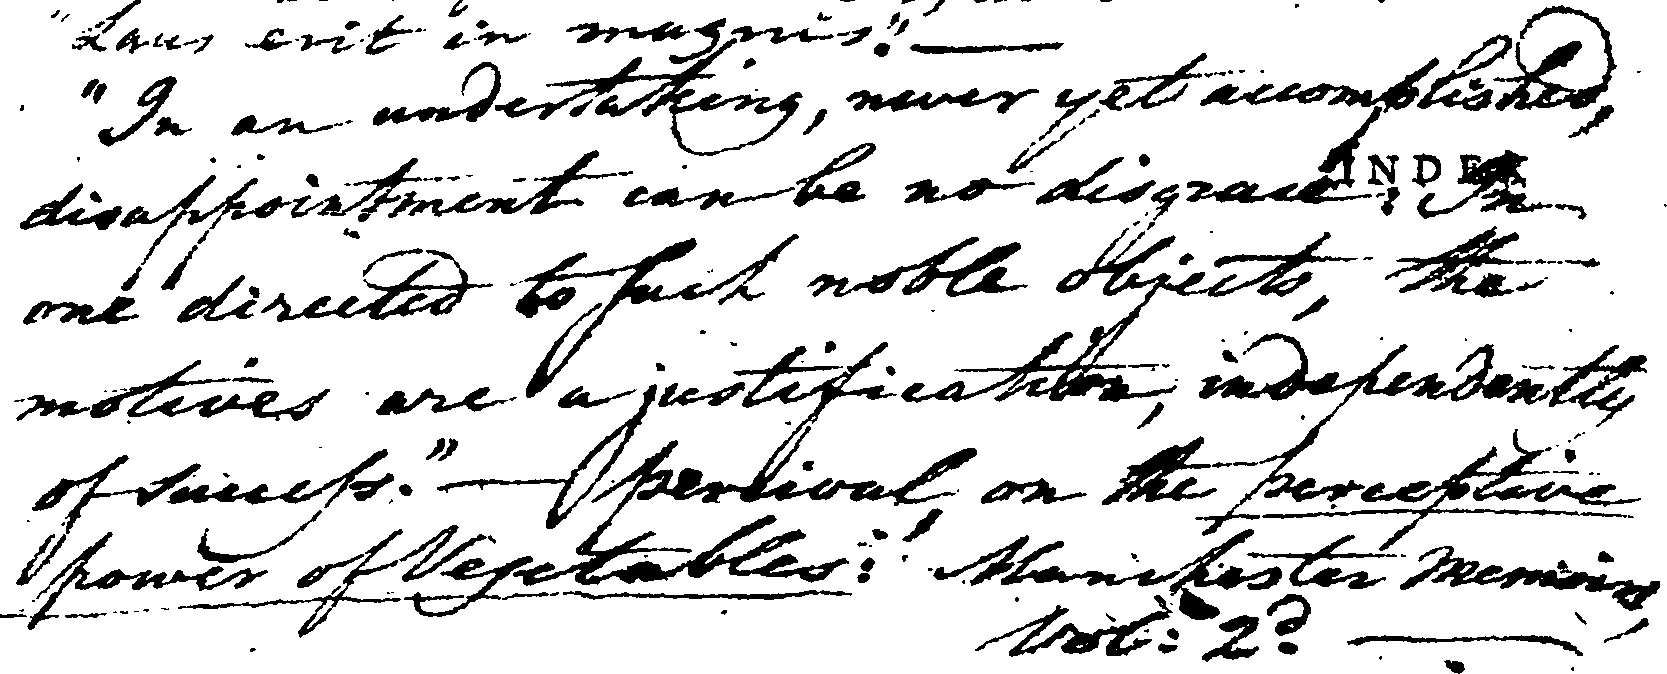 "Laus erit in magnis."—
"In an undertaking, never yet accomplished,
INDEX
disappointment can be no disgrace: In
one directed to such noble objects, the
motives are a justification, independently
of success."— Percival, on the perceptive
power of Vegetables: Manchester Memoirs,
Vol: 2d. —